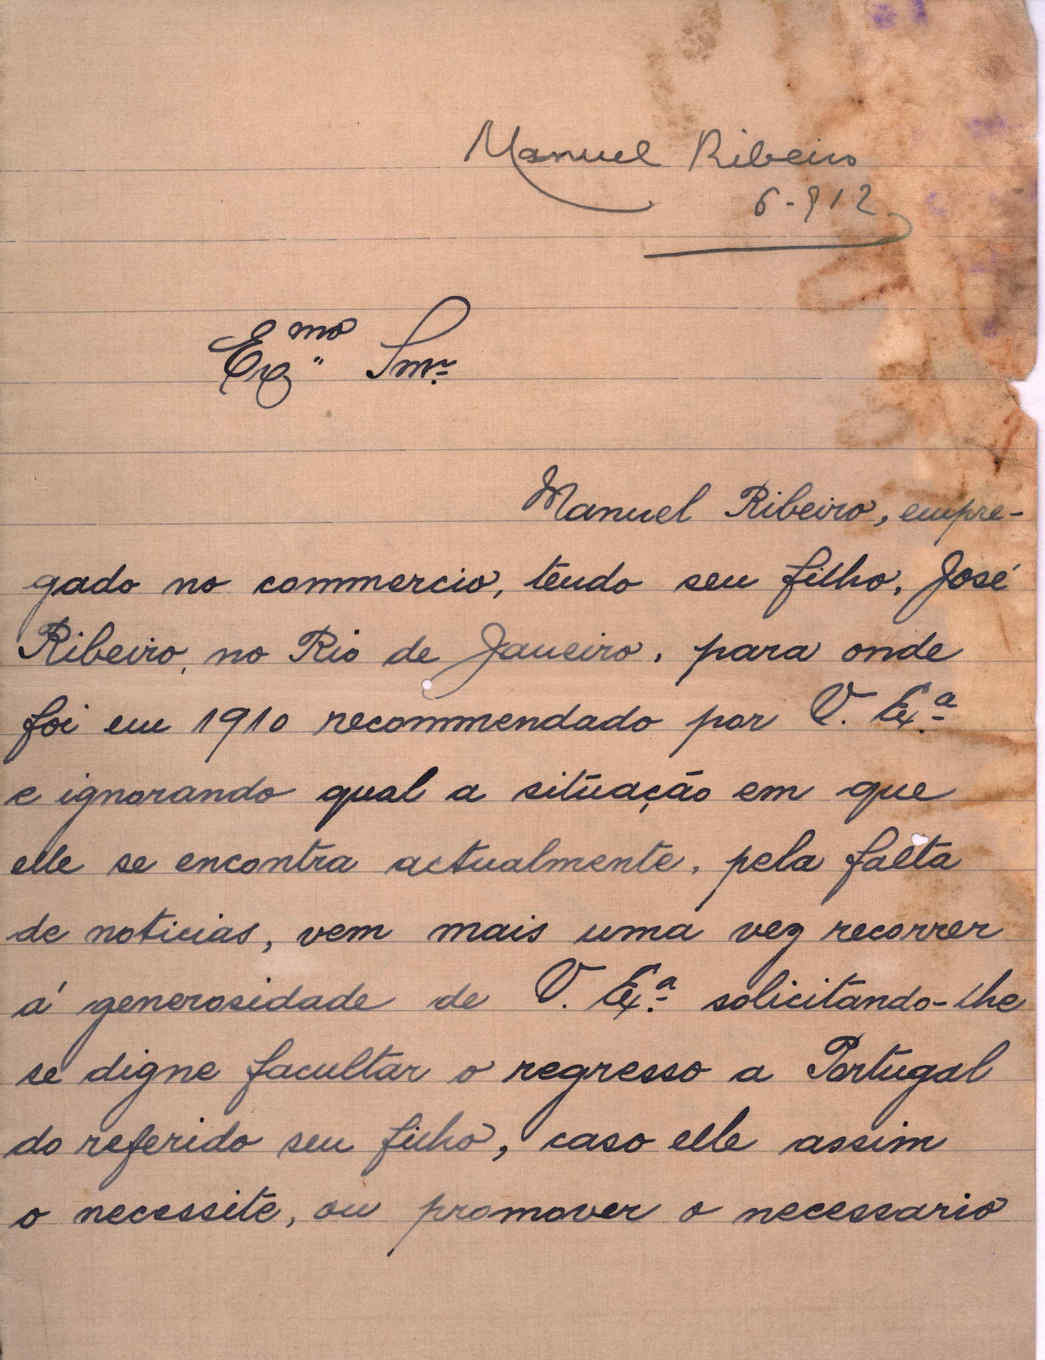 Manuel Ribeiro
6-912
Exmo Snr.
Manuel Ribeiro, empre-
gado no commercio, tendo seu filho, José
Ribeiro, no Rio de Janeiro, para onde
foi em 1910 recommendado por V. Ex.ª
e ignorando qual a situação em que
elle se encontra actualmente, pela falta
de noticias, vem mais uma vez recorrer
á generosidade de V. Ex.ª solicitando-lhe
se digne facultar o regresso a Portugal
do referido seu filho, caso elle assim
o necessite, ou promover o necessario